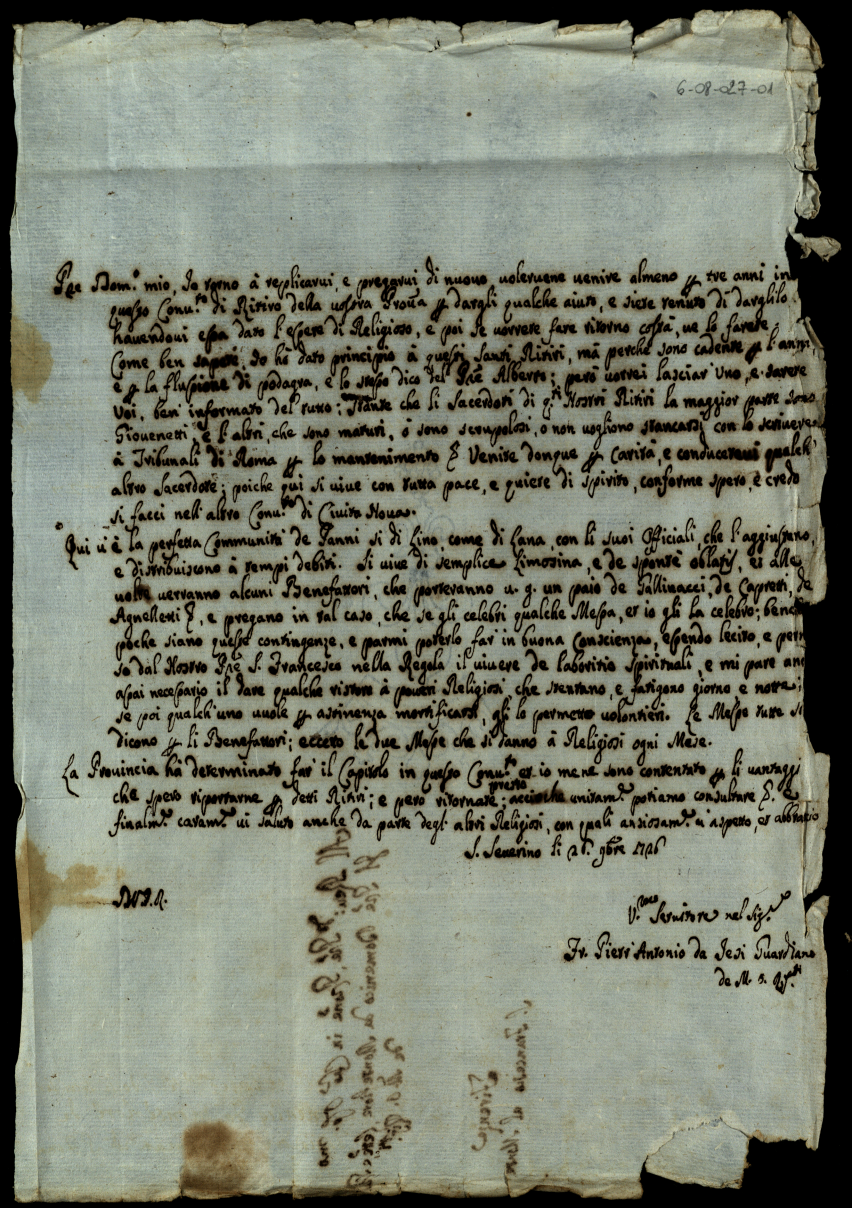 6-08-027-01
Pre Dom.o mio, Io torno à replicarvi, e pregarvi di nuovo volervene venire almeno p tre anni in
questo Conv.to di Ritiro della vostra Prov.a p dargli qualche aiuto, e siete tenuto di darglilo
havendovi essa dato l'essere di Religioso, e poi se vorrete fare ritorno costà, ve lo farete
Come ben sapete Io hò dato principio à questi Santi Ritiri, mà perche sono cadente p l'anni,
e p la flussione di podagra, e lo stesso dico del Pre Alberto; però vorrei lasciar uno, e sarete
voi, ben informato del tutto; Stante che li Sacerdoti di q.sti Nostri Ritiri la maggior parte sono
Giovenetti, e l'altri, che sono maturi, ò sono scrupolosi, o non vogliono stancarsi con lo scrivere
à Tribunali di Roma p lo mantenimento & Venite donque p Carità, e conducetevi qualch'
altro Sacerdote; poiche qui si vive con tutta pace, e quiete di spirito, conforme spero, e credo
si facci nell'altro Conv.to di Civita Nova.
Qui v'è la perfetta Communità de Panni si di Lino, come di Lana, con li suoi Officiali, che l'aggiustano,
e distribuiscono à tempi debiti. Si vive di semplice Limosina, e de sponte oblatis, et alle
volte verranno alcuni Benefattori, che porteranno v. g. un paio de Gallinacci, de Capretti, de
Agnelletti &, e pregano in tal caso, che se gli celebri qualche Messa, et io gli la celebro; benche
poche siano queste contingenze, e parmi poterlo far in buona Conscienza, essendo lecito, e perm
so dal Nostro Pre S. Francesco nella Regola il vivere de laboritio spirituali, e mi pare an
assai necessario il dare qualche ristoro à poveri Religiosi, che stentano, e fatigono giorno e notte;
se poi qualch'uno vuole p astinenza mortificarsi, gli lo permetto volontieri. Le Messe tutte si
dicono p li Benefattori; eccetto le due Messe che si danno à Religiosi ogni Mese.
La Provincia hà determinato far il Capitolo in questo Conv.to et io mene sono contentato p li vantaggi
che spero riportarne p detti Ritiri; e però ritornate presto, accioche unitam.te potiamo consultare &. e
finalm.te caram.te vi saluto anche da parte degl'altri Religiosi, con quali ansiosam.te v'aspetto, et abbraccio
S. Severino li 26. 9bre 1716
V.ro Servitore nel Sig.re
Fr. Pietr'Antonio da Jesi Guardiano